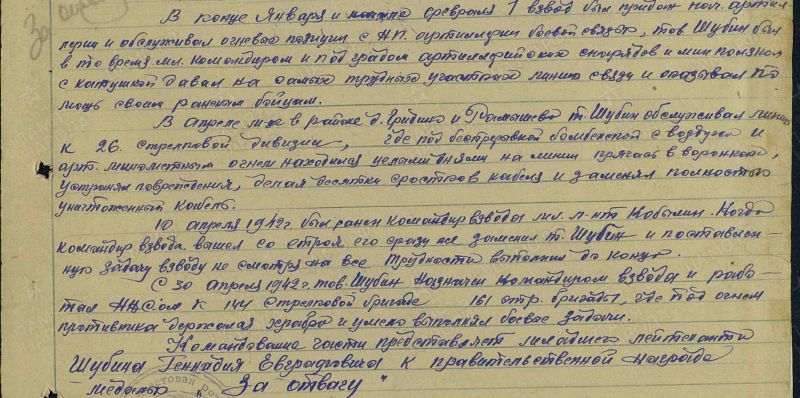 В конце Января и начале февраля 1 взвод был придан нач. артил
лерии и обслуживал огневые позиции с НП. артиллерии боевой связью, тов. Шубин был
в то время мл. командиром и под градом артиллерийских снарядов и мин ползком
с катушкой давал на самых трудных участках линию связи и оказывал по
мощь своим раненым бойцам.
В апреле м-це в районе д. и Рамушево т. Шубин обслуживал линию
к 26. стрелковой дивизии, где под беспрерывной бомбежкой с воздуха и
арт. минометным огнем находился целыми днями на линии прячась в воронках,
устранял повреждения, делая десятки сростков кабеля и заменял полностью
уничтоженный кабель.
10 апреля 1942 г. был ранен командир взвода мл. л-нт Кобылин. Когда
командир взвода вышел со строя его сразу же заменил т. Шубин и поставлен-
ную задачу взводу не смотря на все трудности выполнил до конца.
С 30 апреля 1942 г. тов. Шубин назначен командиром взвода и рабо-
тал к 144 стрелковой бригаде 161 стр. бригады, где под огнем
противника держался храбро и умело выполнял боевые задачи.
Командование части представляет младшего лейтенанта
Шубина Геннадия Евграфовича к правительственной награде
медалью "За отвагу"